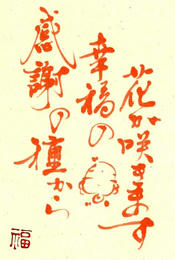 感謝の種から
幸福の
花が咲きます
福